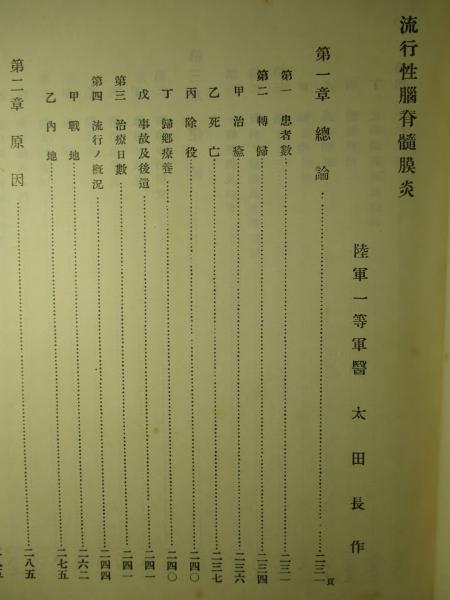 流行性腦脊髓膜炎
陸軍一等軍醫 太田長作
第一章 總論…二三一頁
第一 患者數…二三一
第二 轉歸…二三四
甲 治癒…二三六
乙 死亡…二三七
丙 除役…二四〇
丁 歸鄕療養…二四〇
戊 事故及後遺…二四一
第三 治療日數…二四一
第四 流行ノ槪況…二四四
甲 戰地…二六二
乙 內地…二七五
第二章 原因…二八五